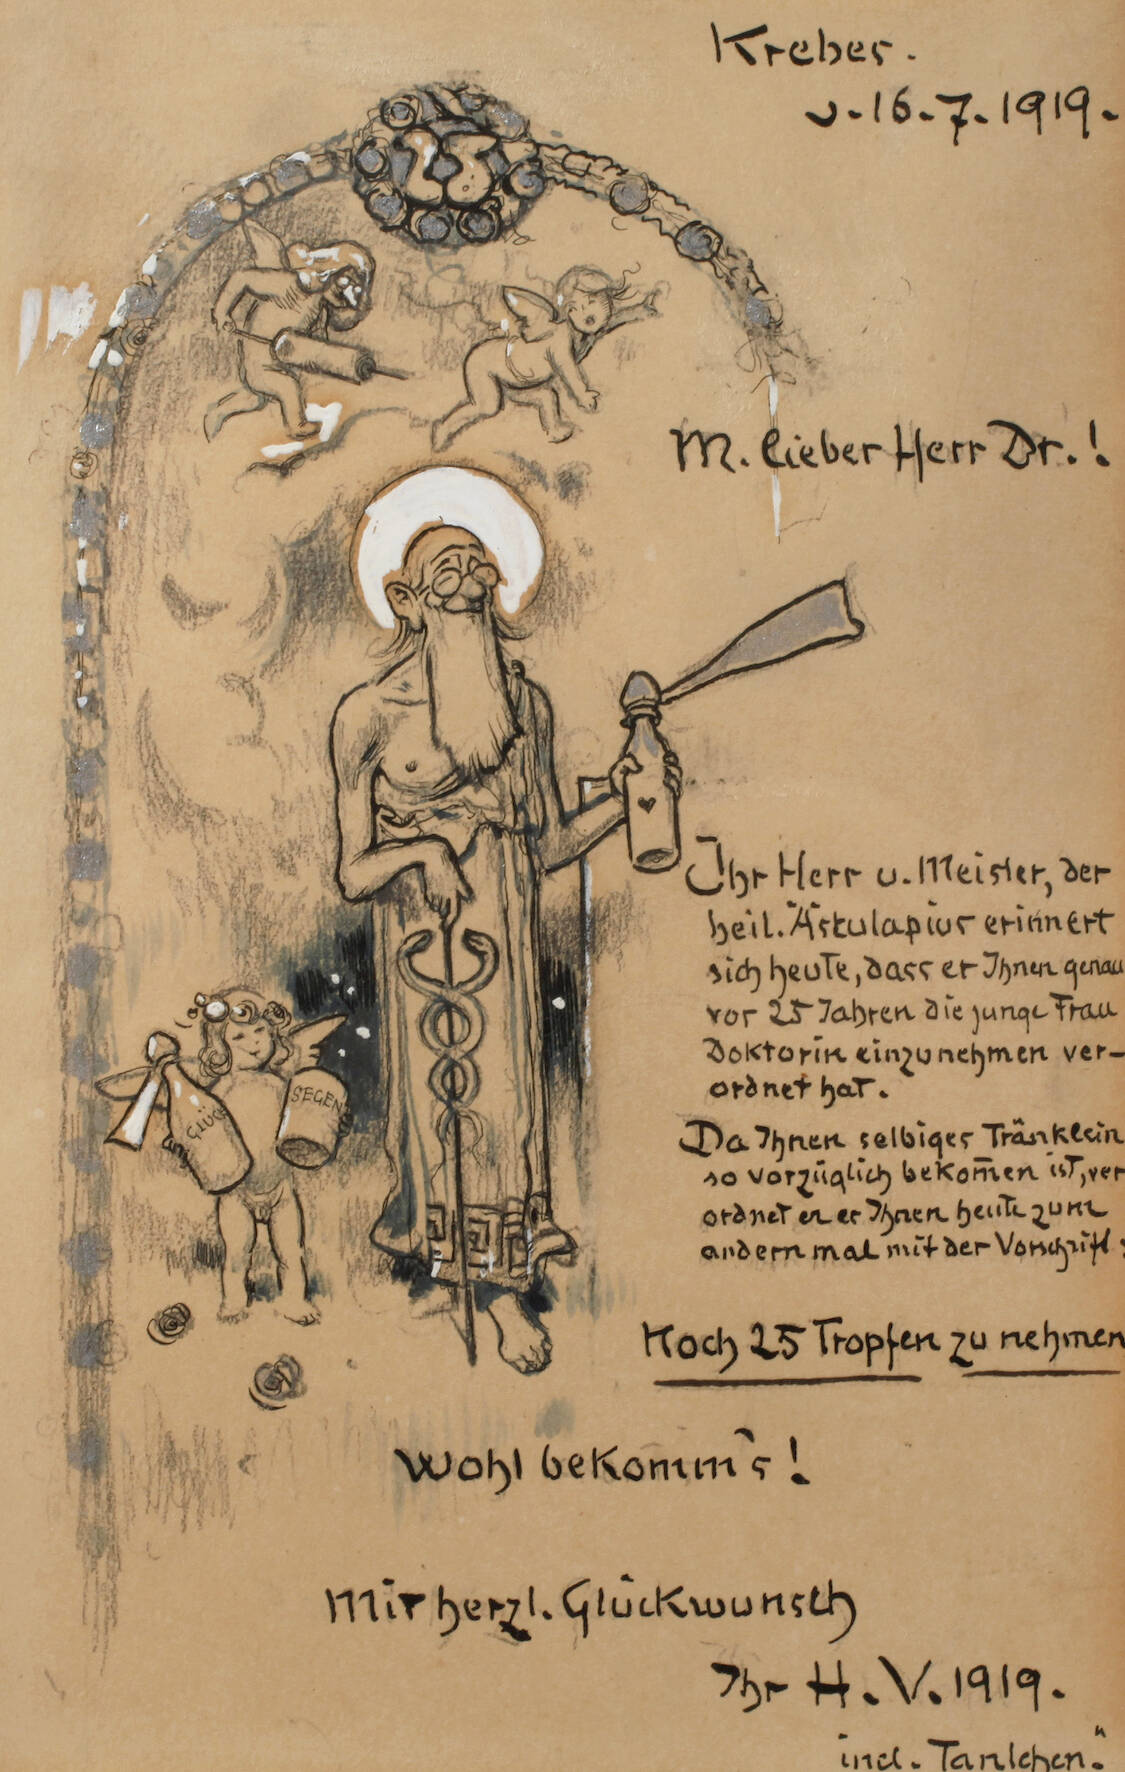 Krebes.
v. 16.7.1919.
M. lieber Herr Dr.!
Ihr Herr u. Meister, der
heil. Äskulapius erinnert
sich heute, dass er Ihnen genau
vor 25 Jahren die junge Frau
Doktorin einzunehmen ver-
ordnet hat.
Da Ihnen selbiges Tränklein
so vorzüglich bekom̄en ist, ver
ordnet er Ihnen heute zum
andern mal mit der Vorschrift:
GLÜCK
SEGEN
Noch 25 Tropfen zu nehmen
Wohl bekomm's!
Mit herzl. Glückwunsch
Ihr H. V. 1919.
incl. Tantchen."